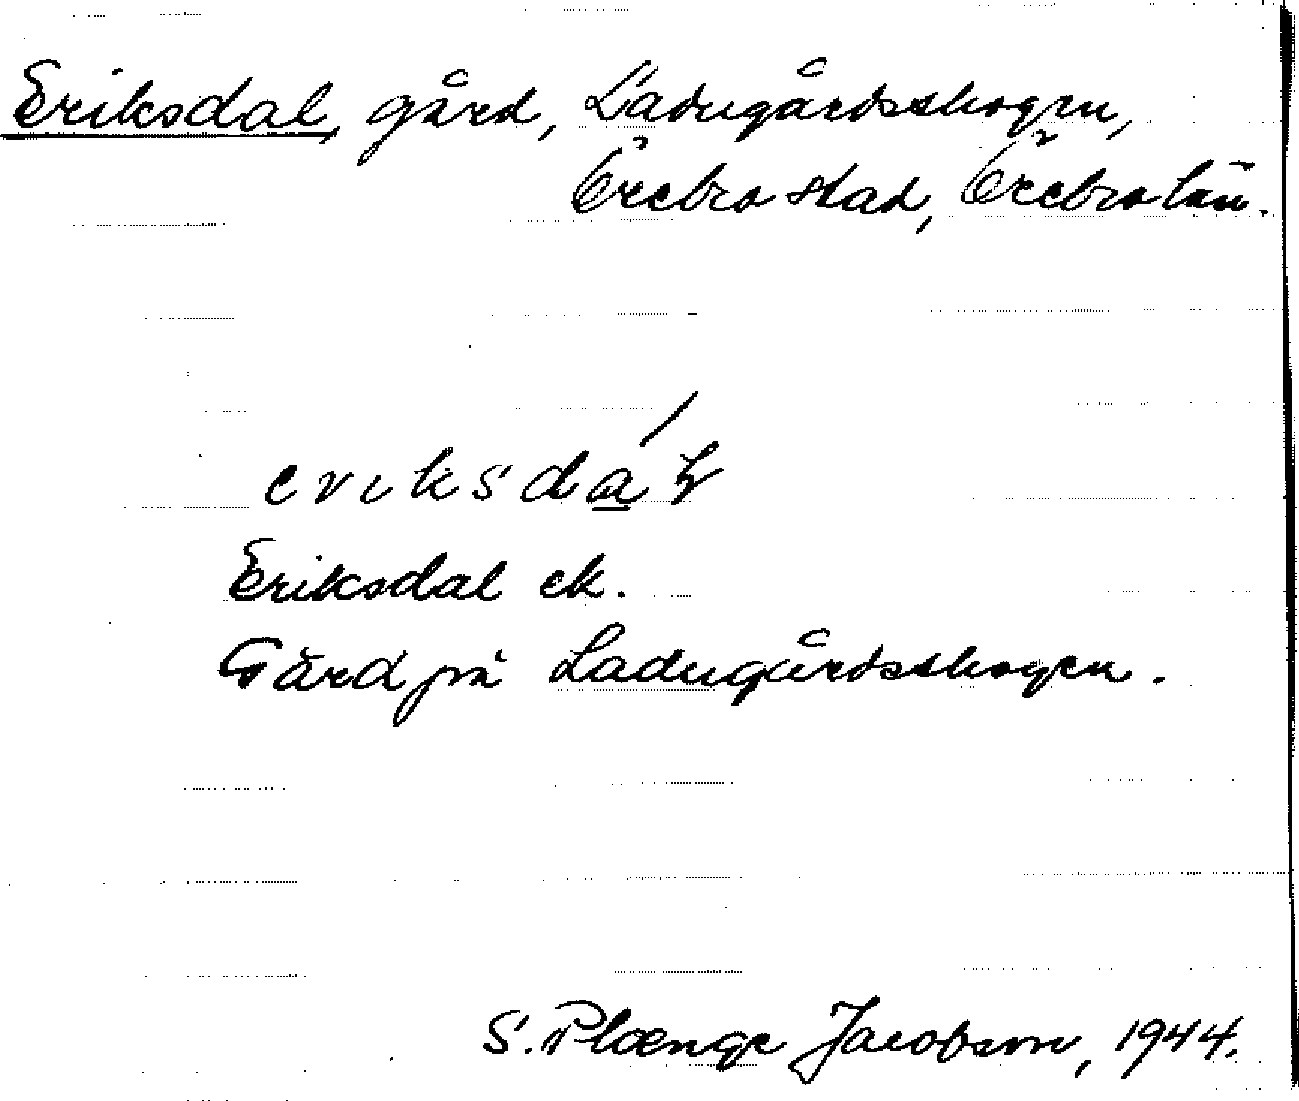 Eriksdal, gård, Ladugårdsskogen,
Örebro stad, Örebro län.
Eriksdal ek.
Gård på Ladugårdsskogen.
S. Plænge Jacobson, 1944.